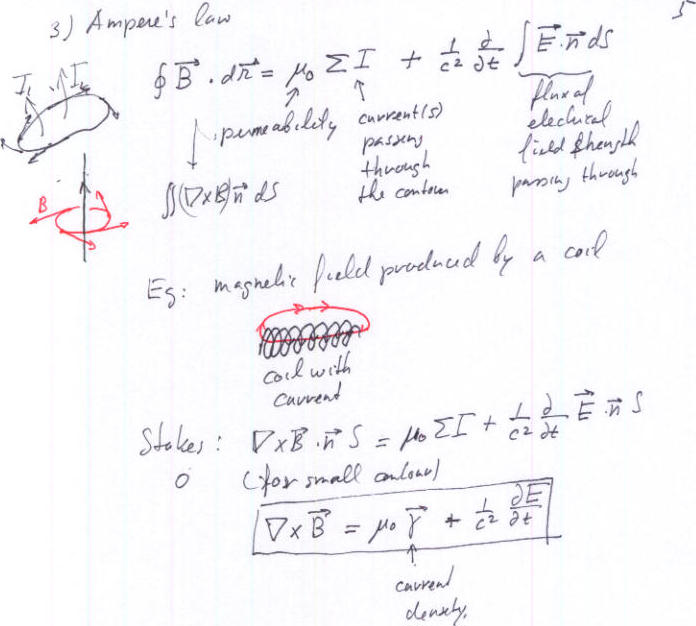 5
3) Ampere's law
I₁ I₂
∮ B⃗ · dr⃗ = μ₀ Σ I + 1/c² ∂/∂t ∫ E⃗ · n⃗ dS
permeability
current(s)
passing
through
the contour
flux of
electrical
field strength
passing through
B
∬(∇×B)n⃗ dS
Eg: magnetic field produced by a coil
coil with
current
Stokes: ∇×B⃗ · n⃗ S = μ₀ Σ I + 1/c² ∂/∂t E⃗ · n⃗ S
(for small contour)
∇×B⃗ = μ₀ γ⃗ + 1/c² ∂E⃗/∂t
current
density.